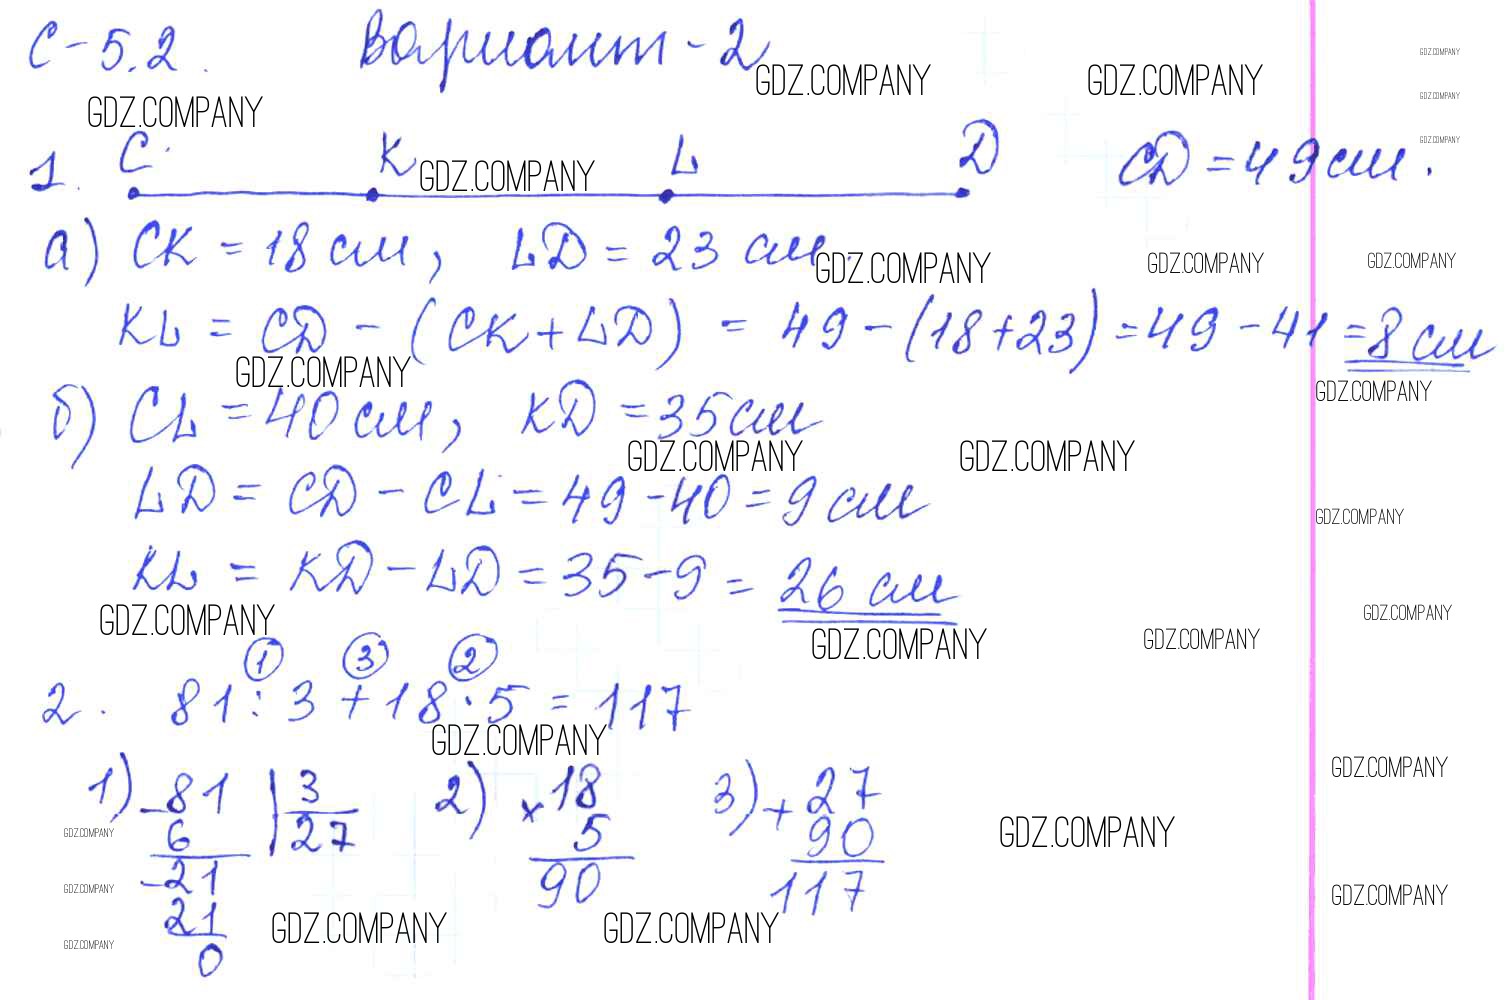 С-5.2. Вариант-2
GDZ.COMPANY GDZ.COMPANY GDZ.COMPANY
GDZ.COMPANY
GDZ.COMPANY
GDZ.COMPANY
1. C K L D CD = 49 см.
GDZ.COMPANY
а) CK = 18 см, LD = 23 см.
GDZ.COMPANY GDZ.COMPANY GDZ.COMPANY
KL = CD - (CK + LD) = 49 - (18 + 23) = 49 - 41 = 8 см
GDZ.COMPANY GDZ.COMPANY
б) CL = 40 см, KD = 35 см
GDZ.COMPANY GDZ.COMPANY
LD = CD - CL = 49 - 40 = 9 см
GDZ.COMPANY
KL = KD - LD = 35 - 9 = 26 см
GDZ.COMPANY GDZ.COMPANY
GDZ.COMPANY GDZ.COMPANY
1 3 2
2. 81 : 3 + 18 · 5 = 117
GDZ.COMPANY GDZ.COMPANY
1) - 81 | 3 2) × 18 3) + 27
6 27 5 90
GDZ.COMPANY GDZ.COMPANY
- 21 90 117
GDZ.COMPANY GDZ.COMPANY
21
GDZ.COMPANY GDZ.COMPANY
0
GDZ.COMPANY